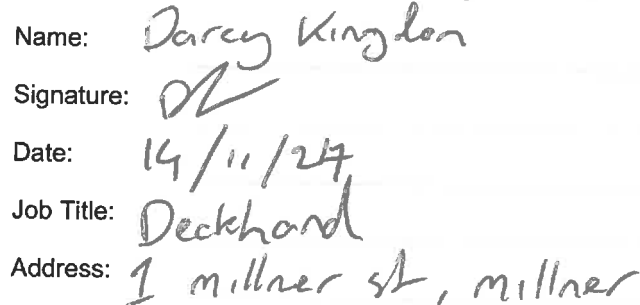 Name: Darcy Kingdon
Signature:
Date: 14/11/24
Job Title: Deckhand
Address: 1 millner st, millner